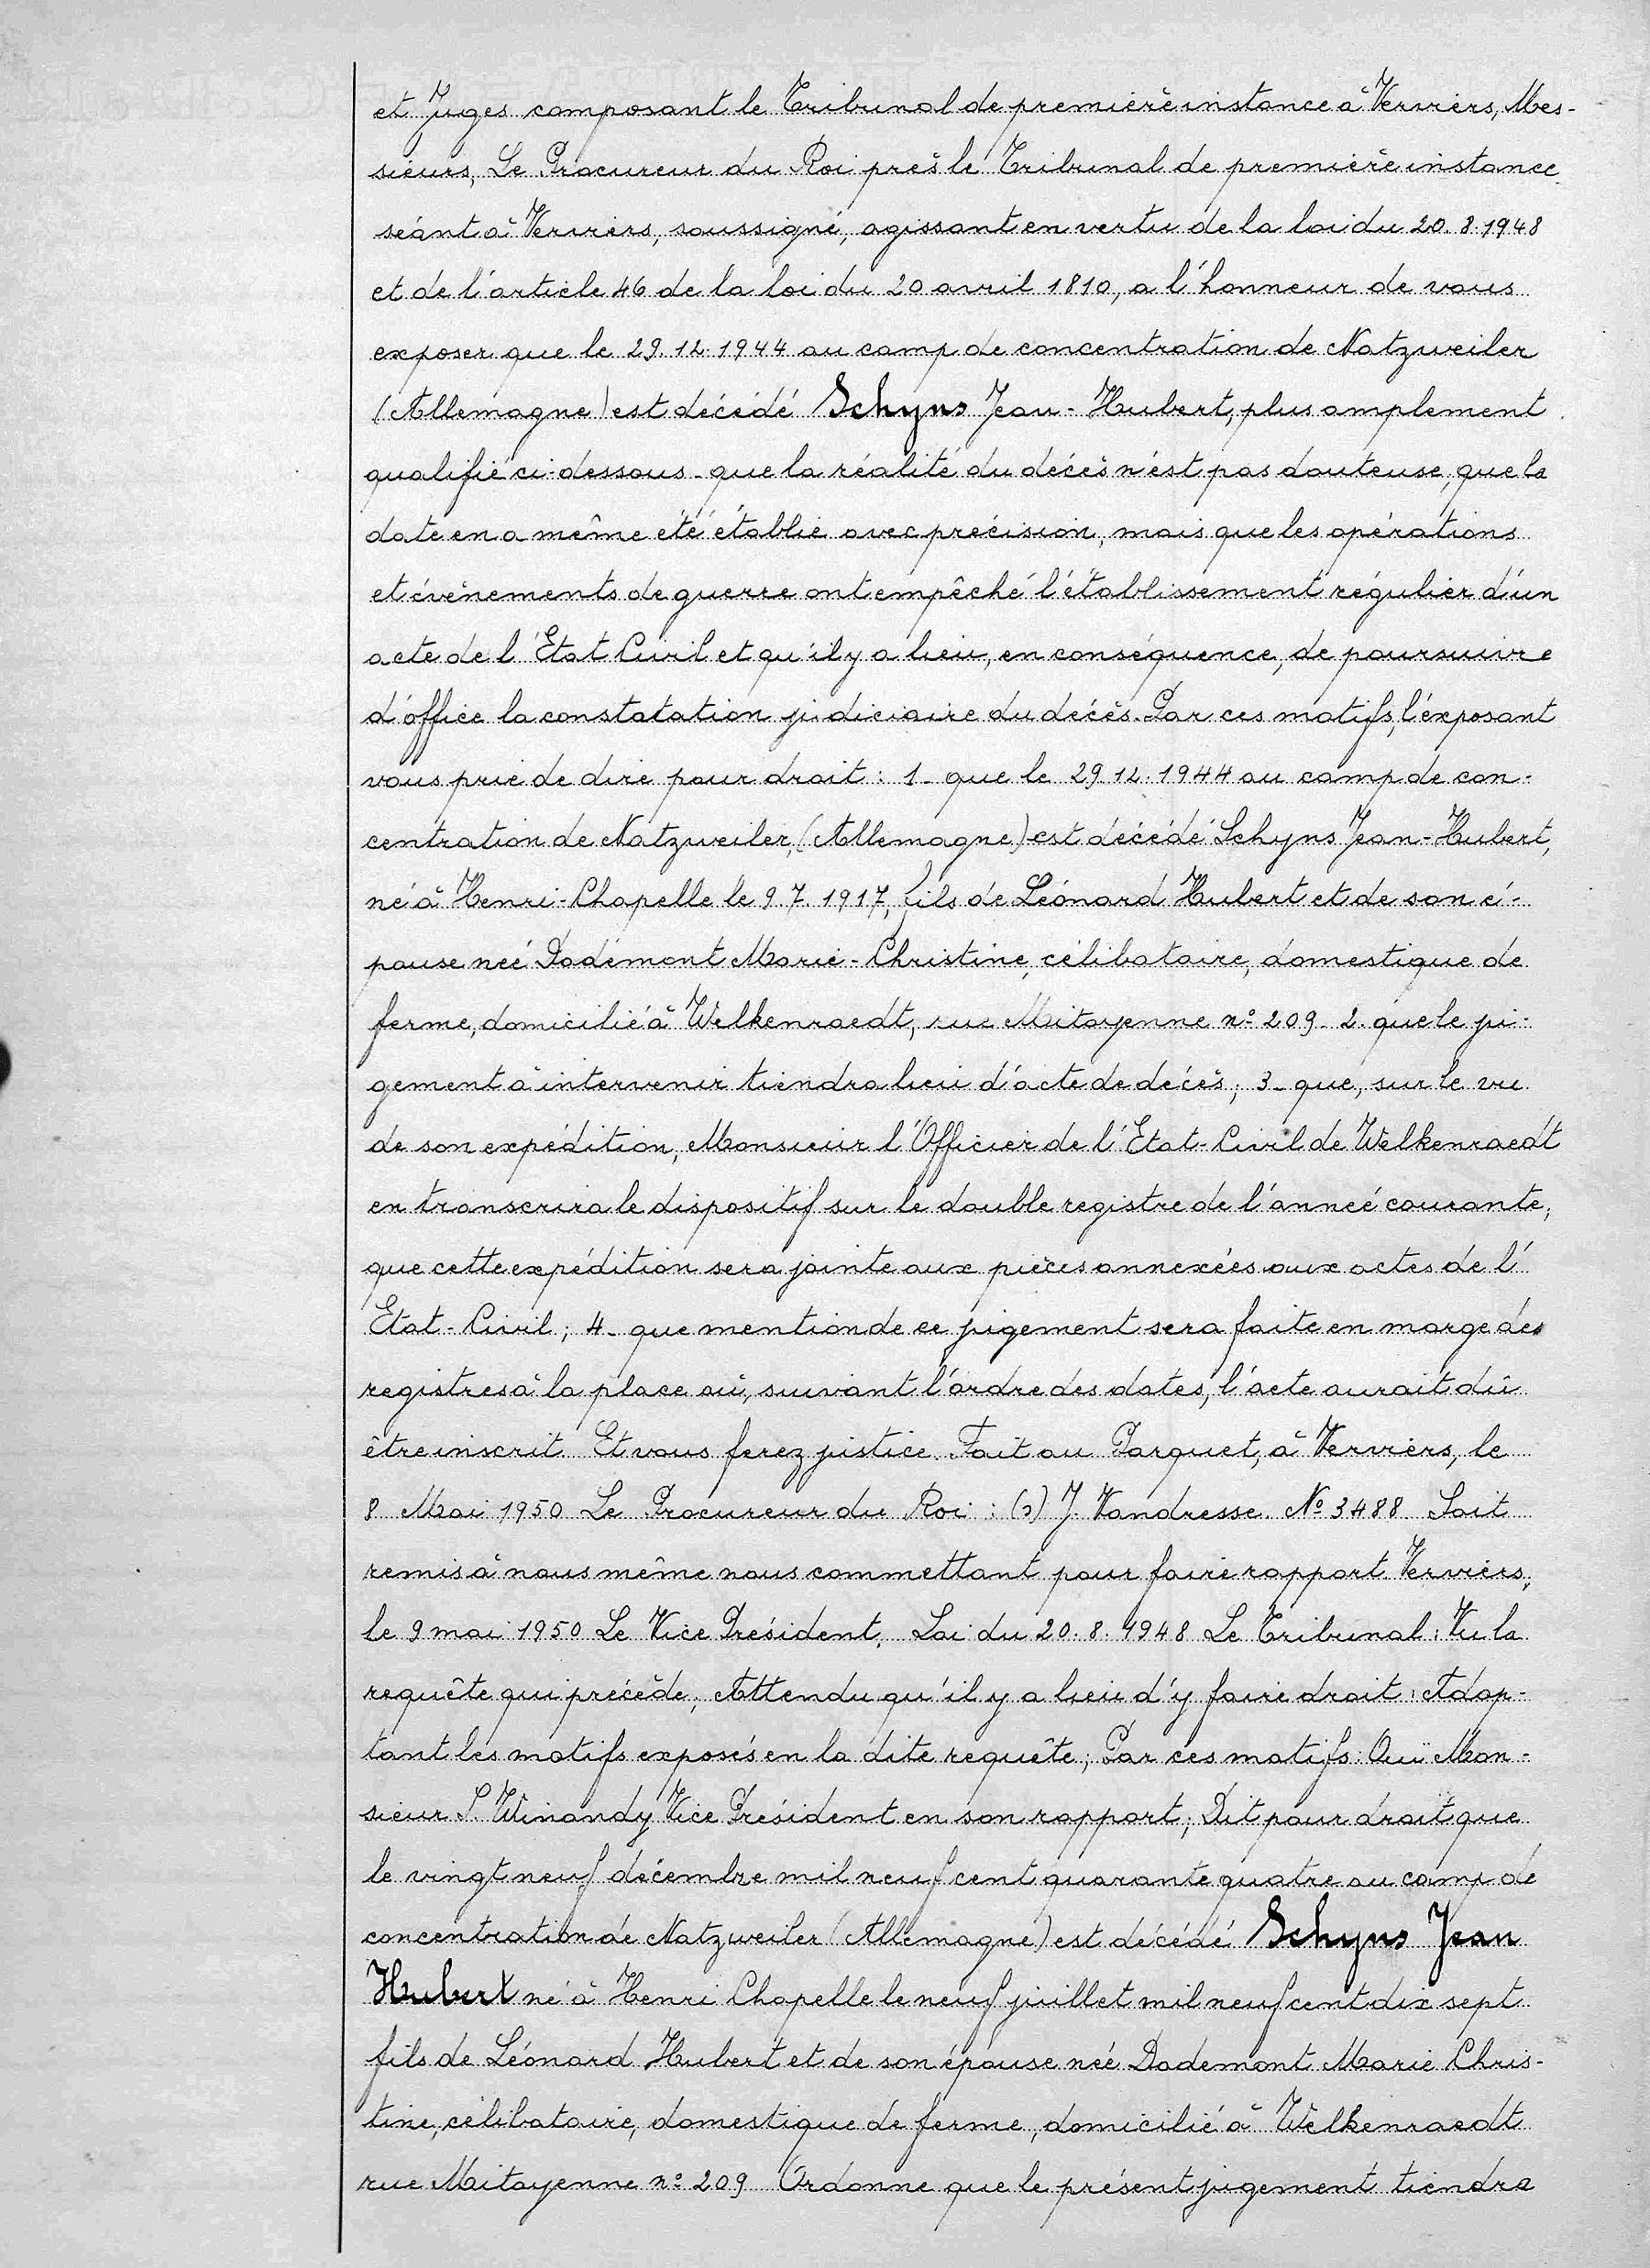 et Juges composant le Tribunal de première instance à Verviers, Mes-
sieurs, Le Procureur du Roi près le Tribunal de première instance
séant à Verviers, soussigné, agissant en vertu de la loi du 20.8.1948
et de l'article 46 de la loi du 20 avril 1810, a l'honneur de vous
exposer que le 29.12.1944 au camp de concentration de Natzweiler
(Allemagne) est décédé Schyns Jean-Hubert, plus amplement
qualifié ci-dessous - que la réalité du décès n'est pas douteuse, que la
date en a même été établie avec précision, mais que les opérations
et évènements de guerre ont empêché l'établissement régulier d'un
acte de l'Etat Civil et qu'il y a lieu, en conséquence, de poursuivre
d'office la constatation judiciaire du décès. Par ces motifs, l'exposant
vous prie de dire pour droit : 1- que le 29.12.1944 au camp de con-
centration de Natzweiler, (Allemagne) est décédé Schyns Jean-Hubert,
né à Henri-Chapelle le 9.7.1917, fils de Léonard Hubert et de son é-
pouse née Dadémont Marie-Christine, célibataire, domestique de
ferme, domicilié à Welkenraedt, rue Mitoyenne n° 209- 2. que le ju-
gement à intervenir tiendra lieu d'acte de décès; 3- que, sur le vu
de son expédition, Monsieur l'Officier de l'Etat-Civil de Welkenraedt
en transcrira le dispositif sur le double registre de l'année courante,
que cette expédition sera jointe aux pièces annexées aux actes de l'
Etat-Civil; 4- que mention de ce jugement sera faite en marge des
registres à la place où, suivant l'ordre des dates, l'acte aurait dû
être inscrit. Et vous ferez justice. Fait au Parquet, à Verviers, le
8 Mai 1950 Le Procureur du Roi : (s) J. Vandresse. N° 3488 Soit
remis à nous même nous commettant pour faire rapport. Verviers,
le 9 mai 1950 Le Vice Président. Loi du 20.8.1948 Le Tribunal : Vu la
requête qui précède; Attendu qu'il y a lieu d'y faire droit : Adop-
tant les motifs exposés en la dite requête; Par ces motifs : Ouï Mon-
sieur S. Winandy Vice Président en son rapport; Dit pour droit que
le vingt neuf décembre mil neuf cent quarante quatre au camp de
concentration de Natzweiler (Allemagne) est décédé Schyns Jean
Hubert né à Henri Chapelle le neuf juillet mil neuf cent dix sept
fils de Léonard Hubert et de son épouse née Dademont Marie Chris-
tine, célibataire, domestique de ferme, domicilié à Welkenraedt
rue Mitoyenne n° 209 Ordonne que le présent jugement tiendra